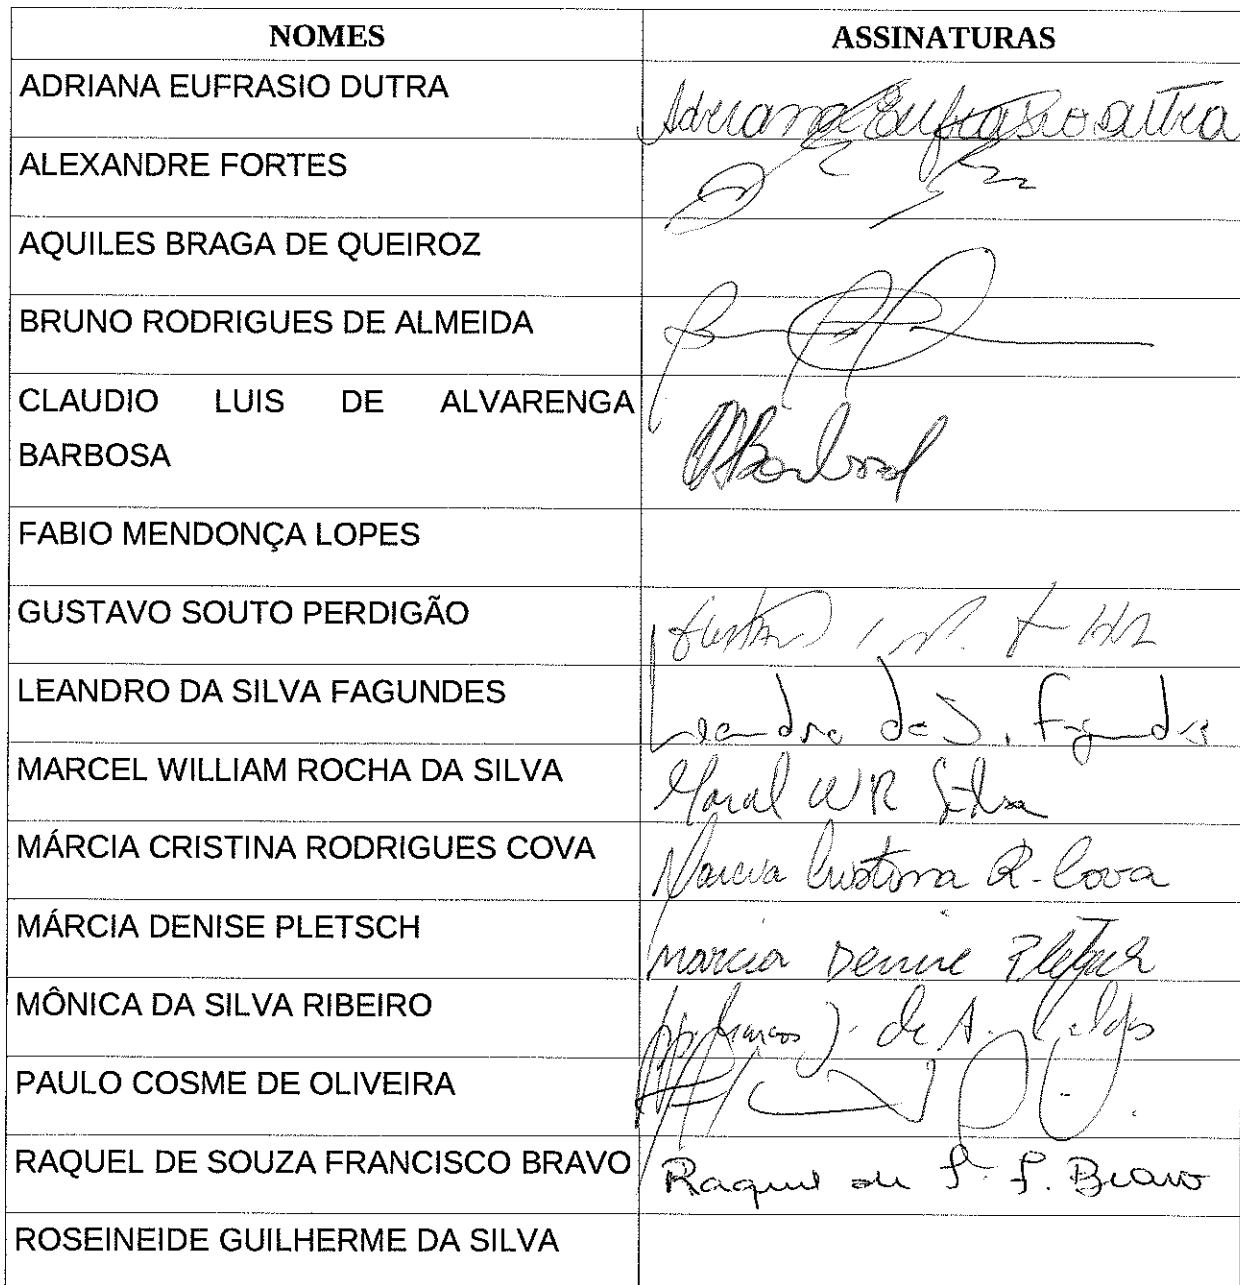 NOMES ASSINATURAS
ADRIANA EUFRASIO DUTRA Adriana Eufrasio Dutra
ALEXANDRE FORTES
AQUILES BRAGA DE QUEIROZ
BRUNO RODRIGUES DE ALMEIDA
CLAUDIO LUIS DE ALVARENGA
BARBOSA
FABIO MENDONÇA LOPES
GUSTAVO SOUTO PERDIGÃO
LEANDRO DA SILVA FAGUNDES Leandro da S. Fagundes
MARCEL WILLIAM ROCHA DA SILVA Marcel W R Silva
MÁRCIA CRISTINA RODRIGUES COVA Marcia Cristina R. Cova
MÁRCIA DENISE PLETSCH Marcia Denise Pletsch
MÔNICA DA SILVA RIBEIRO
PAULO COSME DE OLIVEIRA
RAQUEL DE SOUZA FRANCISCO BRAVO Raquel de S. F. Bravo
ROSEINEIDE GUILHERME DA SILVA